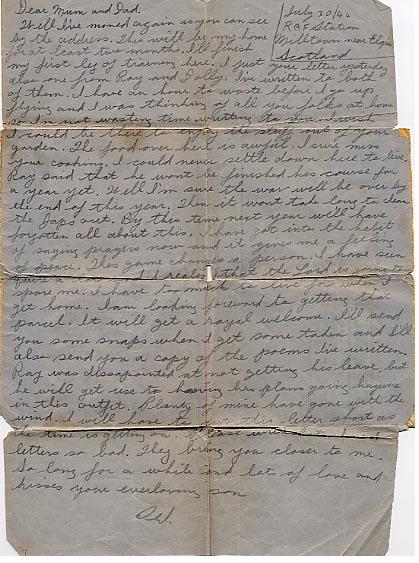 July 30/44
RAF Station
Milltown near Elgin
Scotland
Dear Mum and Dad.
Well I've moved again as you can see
by the address. This will be my home
for at least two months. I'll finish
my first leg of training here. I just your letter yesterday
also one from Ray and Dolly. I've written to both
of them. I have an hour to waste before I go up
flying and I was thinking of all you folks at home
so I'm not wasting time writting to you. I wish
I could be there to the out of your
garden. The food over here is awful. I sure miss
your cooking. I could never settle down here to live.
Ray said that he wont be finished his course for
a year yet. Well I'm sure the war will be over by
the end of this year. Then it wont take long to clean
the Japs out. By this time next year we'll have
forgotten all about this. I have got into the habit
of saying prayers now and it gives me a feeling
of peace. This game changes a person. I have seen
and I that the Lord is to
spare me. I have too much to live for when I
get home. I am looking foreward to getting that
parcel. It will get a royal welcome. I'll send
you some snaps when I get some taken and I'll
also send you a copy of the poems I've written.
Ray was dissapointed at not getting his leave, but
he will get use to having his plans going haywire
in this outfit. Plenty mine have gone with the
wind. I will have to this letter short as
the time is on.
letters so bad. They bring you closer to me.
So long for a while and lots of love and
kisses your everloving son